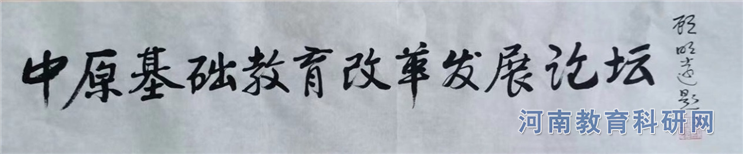 中原基础教育改革发展论坛
顾明远题
河南教育科研网